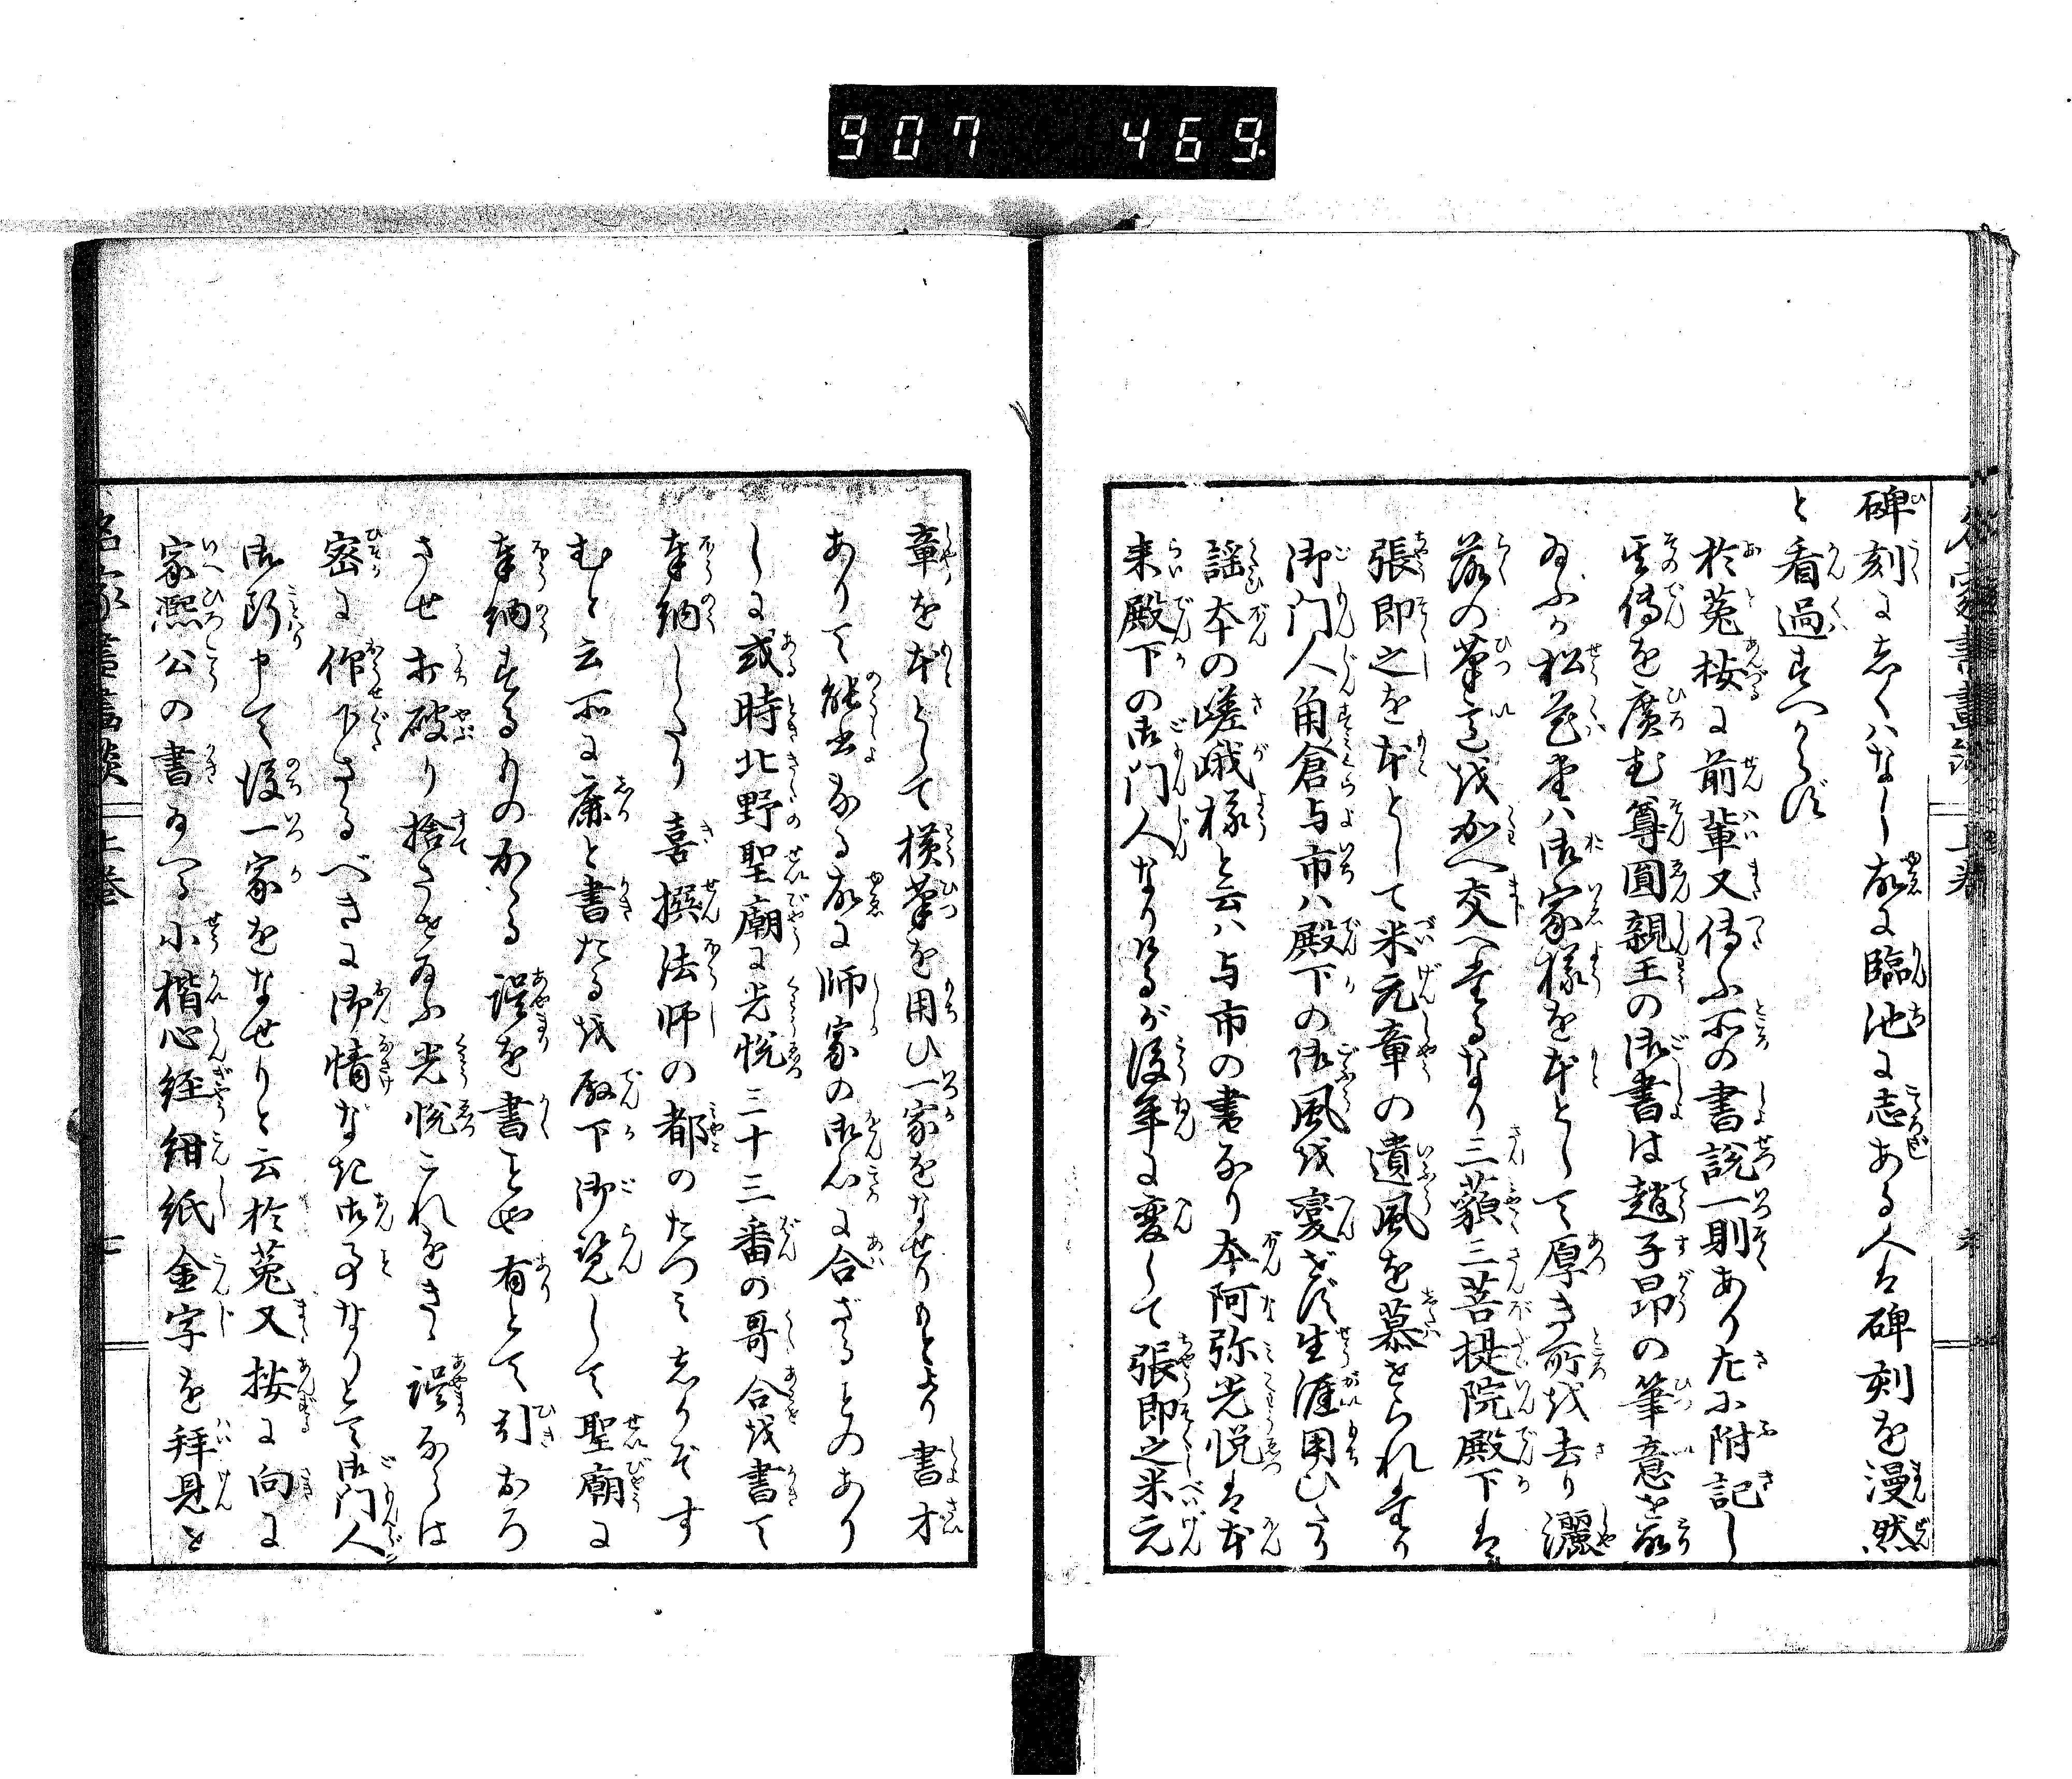 907 469.
碑刻にしくハなし故に臨池に志ある人は碑刻を漫然
と看過すへからず
於菟按に前輩又伝ふ所の書説一則あり左に附記し
其傳を廣む尊圓親王の御書は趙子昂の筆意を
ふか松花堂ハ御家様を本として厚き所を去り灑
落の筆意を加へ交へ玉るなり三藐三菩提院殿下は
張即之を本として米元章の遺風を慕せられ玉り
御门人角倉与市ハ殿下の御風を変せず生涯用ひたり
謡本の嵯峨様と云ハ与市の書なり本阿弥光悦は本
来殿下の御门人なりけるが後年に変して張即之米元
章を本として横筆を用ひ一家をなせりもとより書才
ありて能書なる故に師家の御心に合ざることのあり
しに或時北野聖廟に光悦三十三番の哥合を書て
奉納したり喜撰法師の都のたつミしかそす
むと云所に鹿と書たるを殿下御覧して聖廟に
奉納するものかゝる誤を書ことや有とて引おろ
させ打破り捨たせ玉ふ光悦これをきゝ誤ならは
密に仰下さるべきに御情なき御事なりとて御门人
御断申て後一家をなせりと云於菟又按に向に
家熈公の書玉へる小楷心経紺紙金字を拝見を
名家書畫談 上巻 七